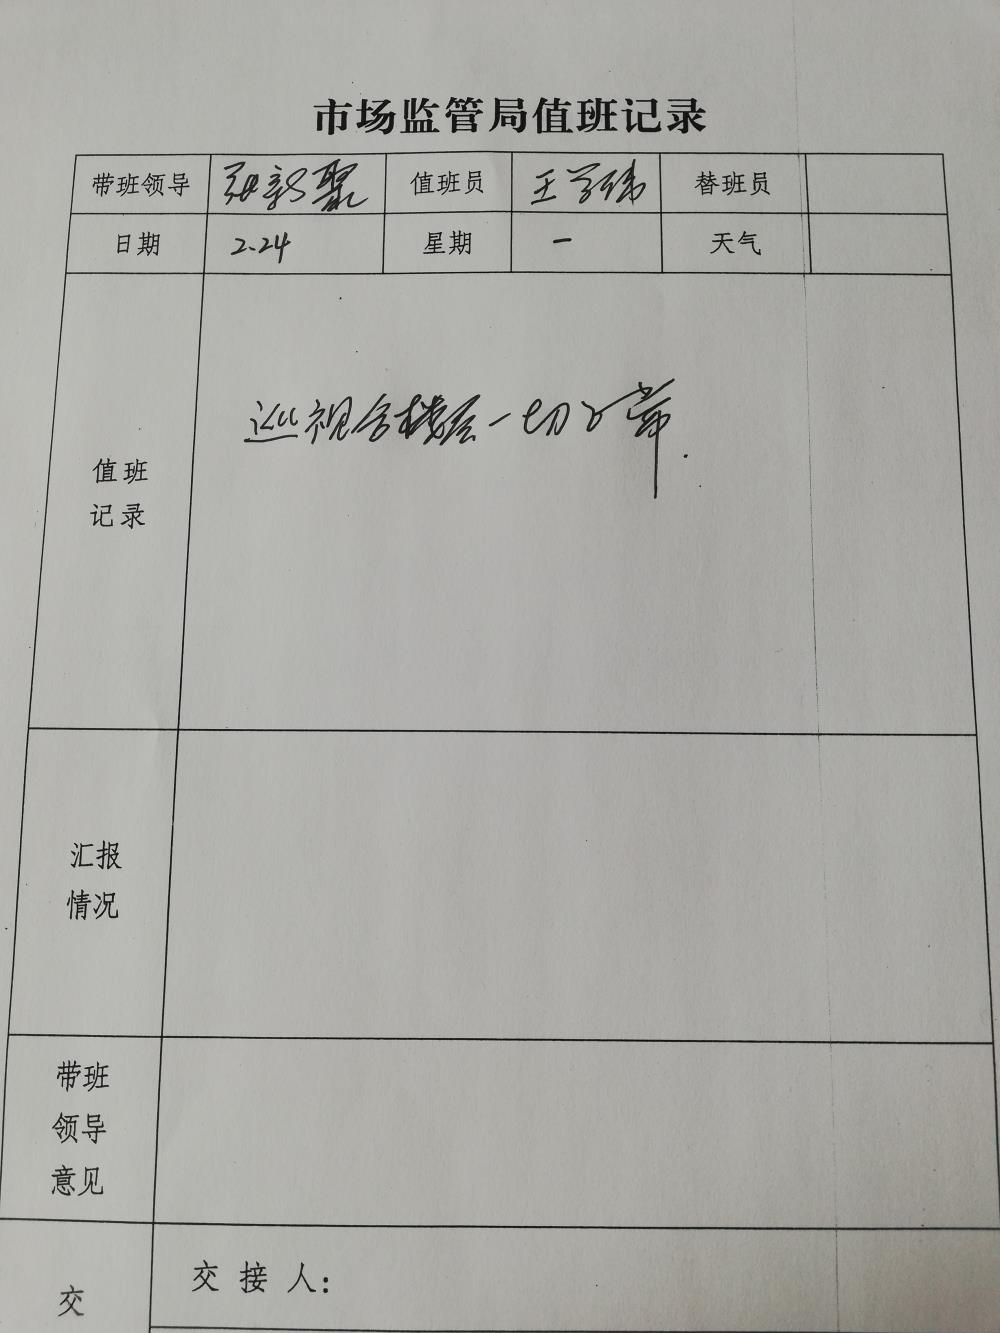 市场监管局值班记录
带班领导 张新聚 值班员 王学伟 替班员
日期 2.24 星期 一 天气
值班
记录
巡视各楼层一切正常.
汇报
情况
带班
领导
意见
交接人:
交